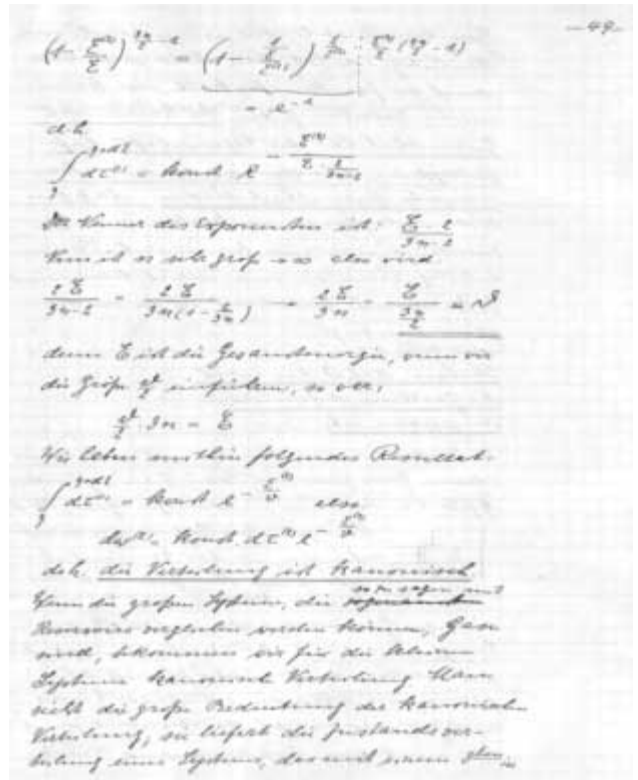 — 49 —
(1 - E⁽¹⁾/E)^(3n/2 - 1) = (1 - 
= e⁻¹
d.h.
∫ dτ⁽¹⁾ = konst. e
Der Nenner des Exponenten ist: E 2 / 3n-2
Nun ist n sehr groß also wird
2E/(3n-2) = 2E/(3n(1-2/3n)) = 2E/3n = E/(3n/2) = ϑ
denn E ist die Gesamtenergie, wenn wir
die Größe ϑ/2 einführen, so war:
ϑ/2 · 3n = E
Wir haben mithin folgendes Resultat:
∫ dτ⁽¹⁾ = konst e^(-E⁽¹⁾/ϑ) also
= konst dτ⁽¹⁾ e^(-E⁽¹⁾/ϑ)
d.h. die Verteilung ist kanonisch.
Wenn die großen Systeme, die sozusagen mit
Reservoirs verglichen werden können, Gase
sind, bekommen wir für die kleinen
Systeme kanonische Verteilung. Man
sieht die große Bedeutung der kanonischen
Verteilung, sie liefert die Zustandsver-
teilung eines Systems, das mit einem